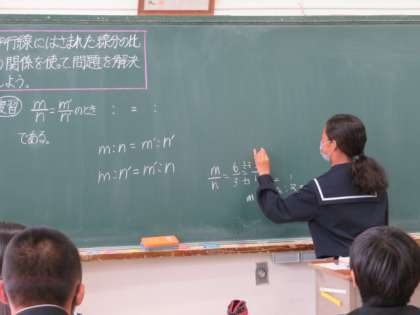 平行線にはさまれた線分の比
の関係を使って問題を解決
しよう。
復習 m/n = m'/n' のとき : = :
である。
m:n = m':n'
m:m' = m':n
m/n = 6/3
m